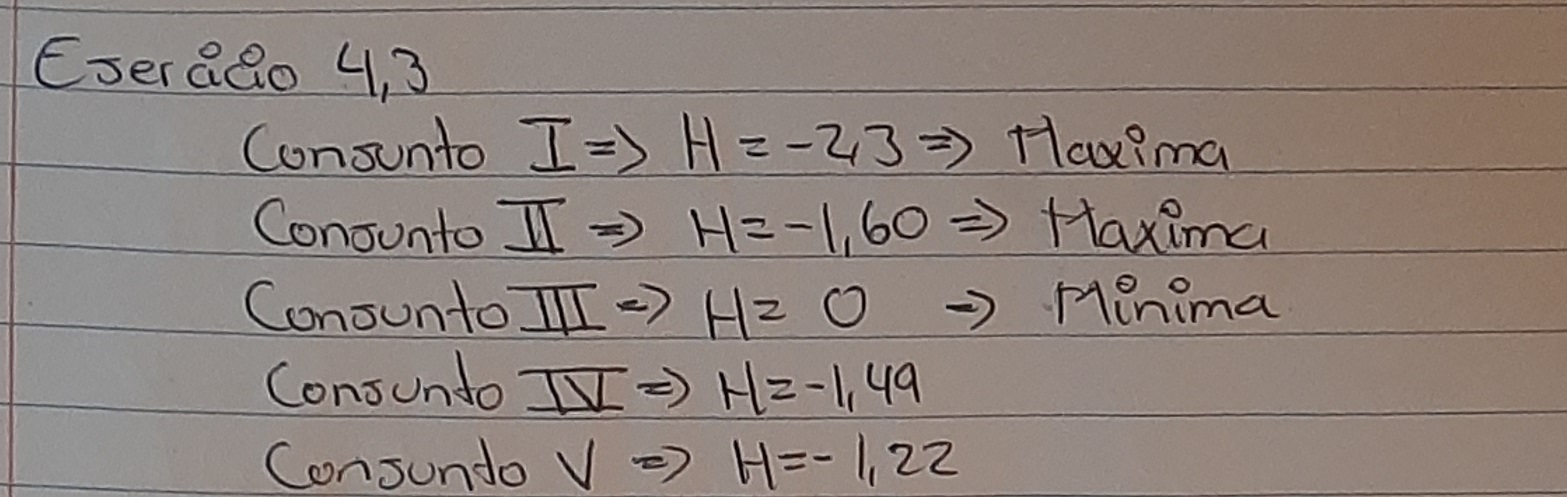 Exercício 4,3
Conjunto I => H = -2,3 => Maxima
Conjunto II => H = -1,60 => Maxima
Conjunto III => H = 0 => Minima
Conjunto IV => H = -1,49
Conjundo V => H = -1,22